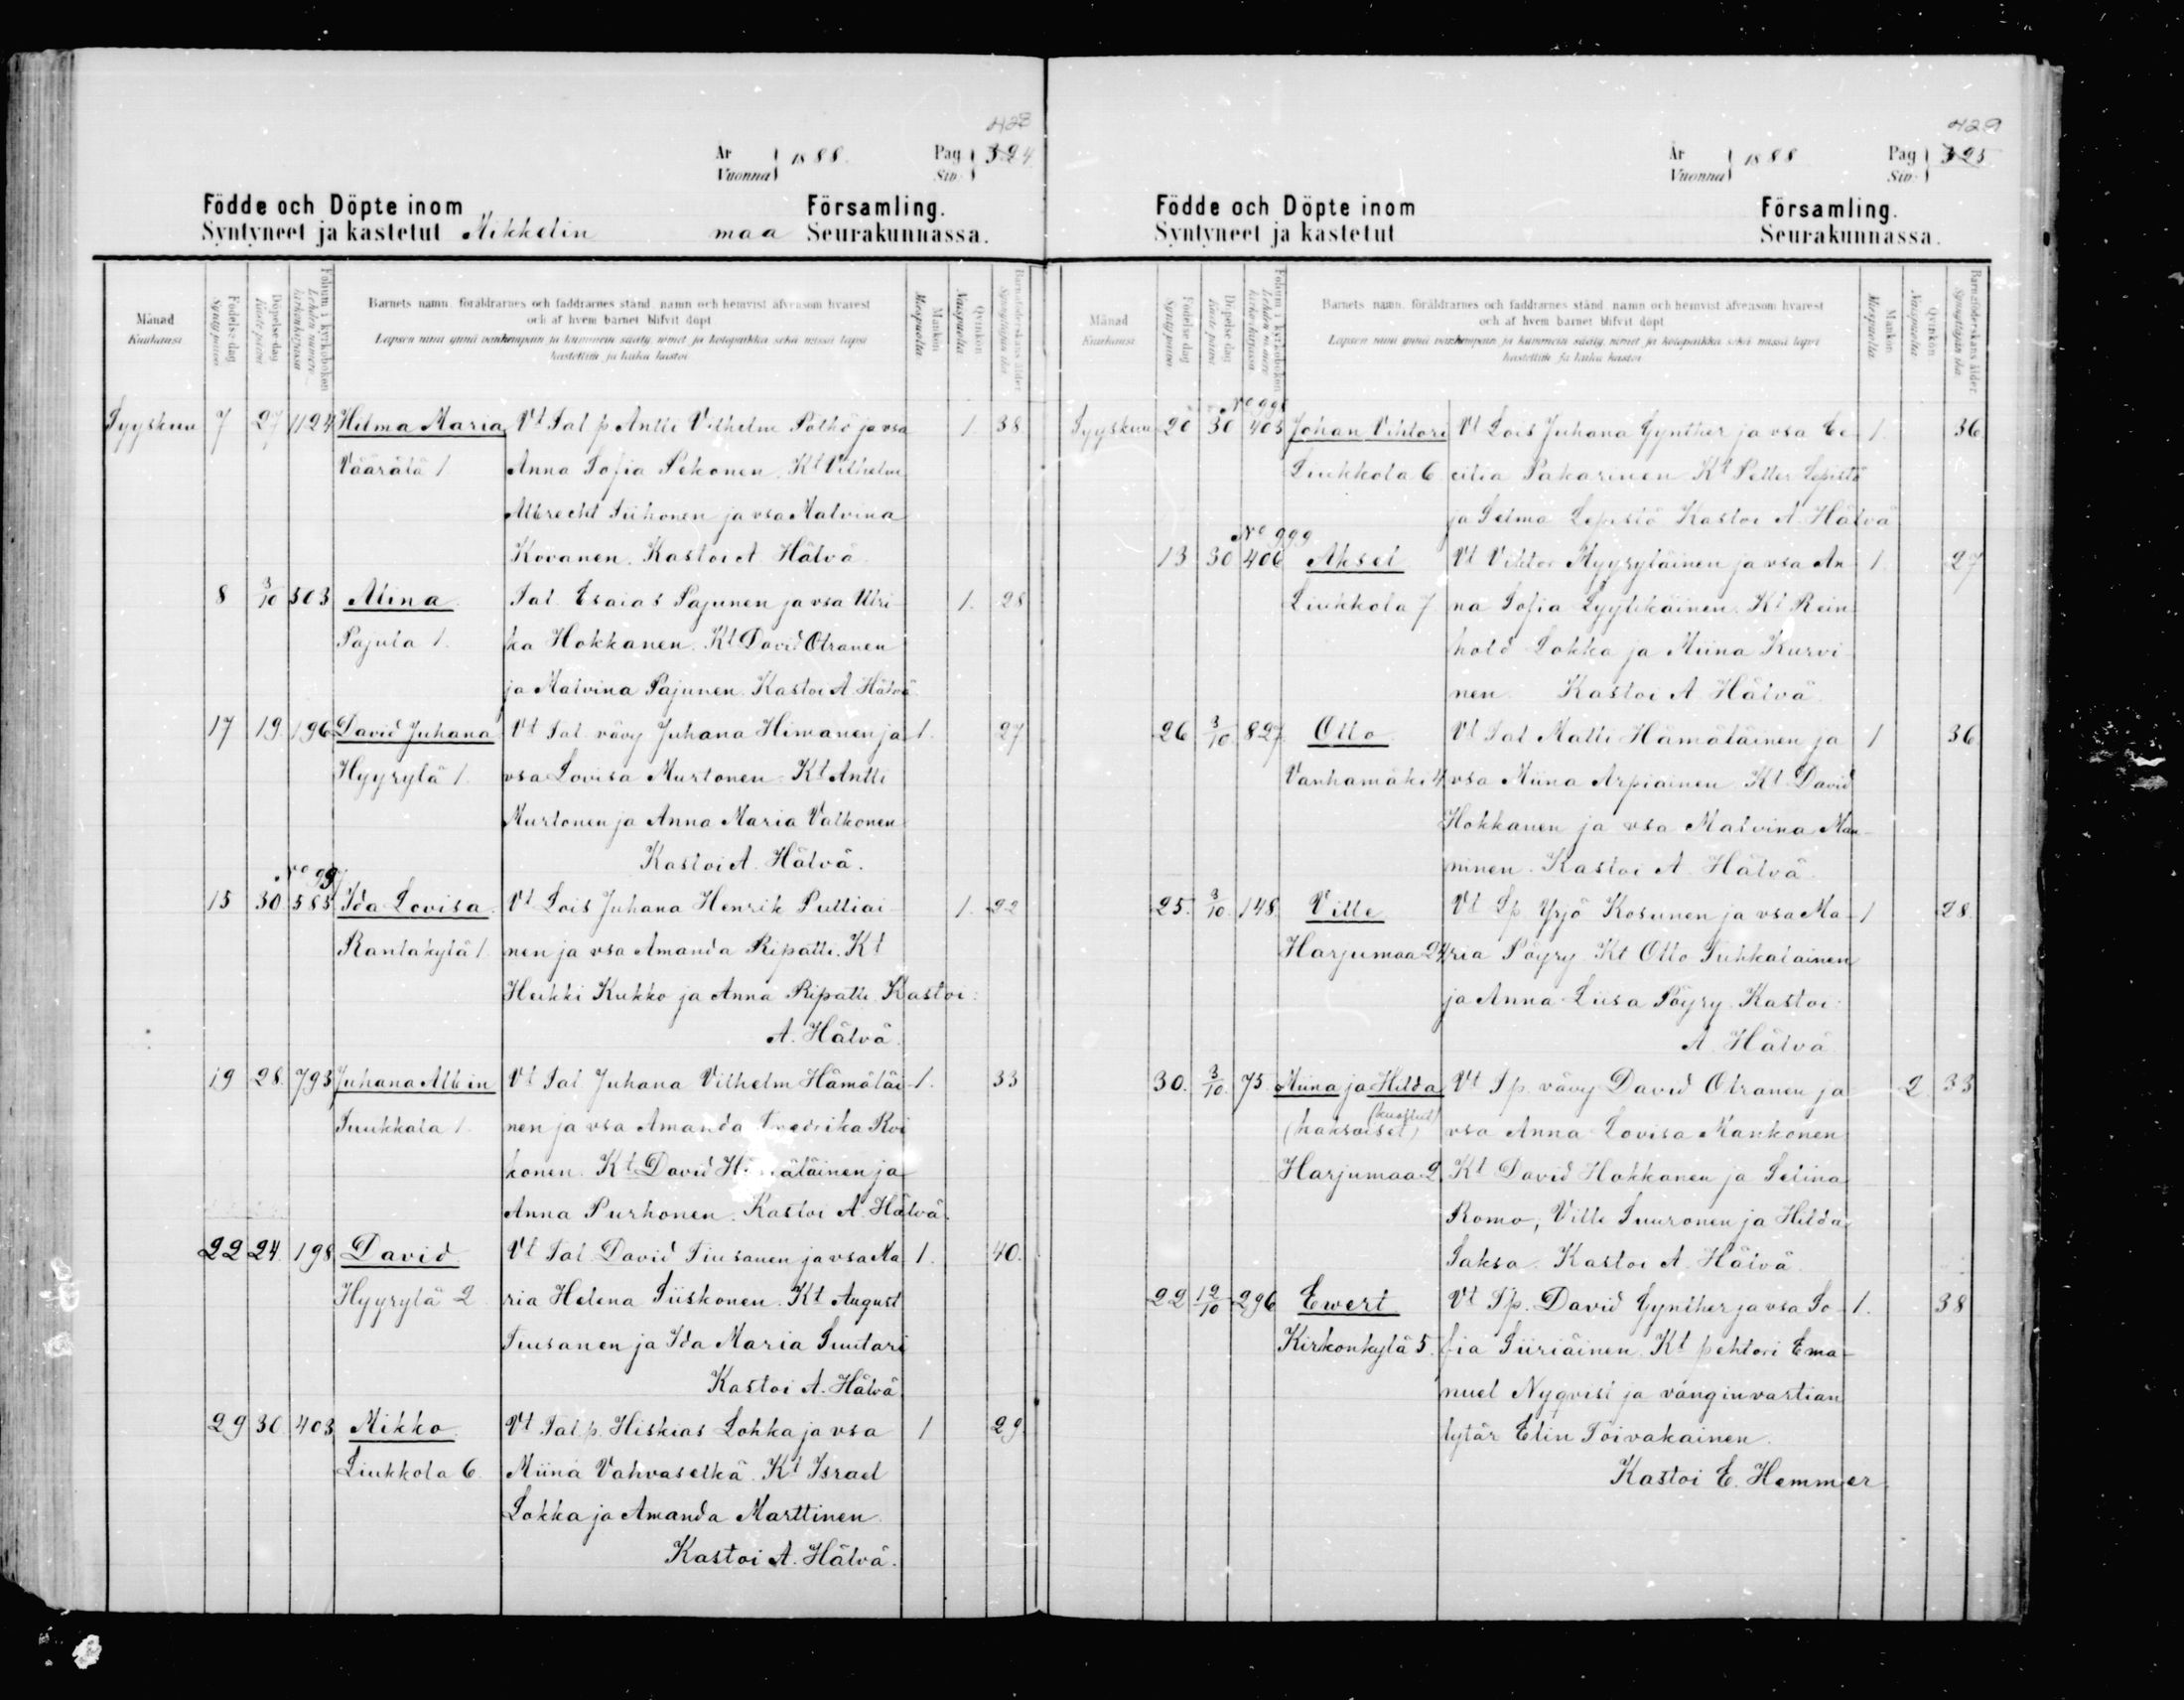 428
År Vuonna 1888. Pag. Siv. 324
Födde och Döpte inom Församling.
Syntyneet ja kastetut Mikkelin maa Seurakunnassa.
Månad
Kuukausi
Födelse-dag
Syntypäivä
Döpelse-dag
Kastepäivä
Folium i kyrkoboken
Lehden numero kirkonkirjassa
Barnets namn, föräldrarnes och faddrarnes stånd, namn och hemvist äfvensom hvarest
och af hvem barnet blifvit döpt
Lapsen nimi ynnä vanhempain ja kummein sääty, nimet ja kotopaikka sekä missä lapsi
kastettiin ja kuka kastoi
Mankön
Miespuolia
Qvinkön
Naispuolia
Barnaföderskans ålder
Synnyttäjän ikä
Syyskuu 7 27 1124 Hilma Maria Vt Tal. p. Antti Vilhelm Pöthö ja vsa 1. 38
Väärälä 1. Anna Sofia Pekonen. Kt Vilhelm
Albrecht Siihonen ja vsa Malvina
Kovanen. Kastoi A. Hälvä
8 3/10 303 Alina Tal. Esaias Pajunen ja vsa Ulri- 1. 28
Pajula 1. ka Hokkanen. Kt David Otranen
ja Malvina Pajunen. Kastoi A. Hälvä
17 19. 196 David Juhana Vt Tal. vävy Juhana Himanen ja 1. 27
Hyyrylä 1. vsa Lovisa Murtonen. Kt Antti
Murtonen ja Anna Maria Valkonen
Kastoi A. Hälvä.
15 30. 585 Ida Lovisa. Vt Lois Juhana Henrik Pulliai- 1. 22
Rantakylä 1. nen ja vsa Amanda Ripatti. Kt
Heikki Kukko ja Anna Ripatti. Kastoi:
A. Hälvä.
19 28. 793 Juhana Albin Vt Tal Juhana Vilhelm Hämäläi- 1. 33
Tuukkala 1. nen ja vsa Amanda Fredrika Roi
konen. Kt David Hämäläinen ja
Anna Purhonen. Kastoi A. Hälvä.
22 24. 198 David Vt Tal. David Tiusanen ja vsa Ma 1. 40.
Hyyrylä 2 ria Helena Siiskonen. Kt August
Tiusanen ja Ida Maria Suutari
Kastoi A. Hälvä
29 30. 403 Mikko. Vt Tal. p. Hiskias Lohka ja vsa 1 29.
Liukkola 6. Miina Vahvaselkä. Kt Israel
Lokka ja Amanda Marttinen
Kastoi A. Hälvä.
429
År Vuonna 1888 Pag. Siv. 325
Födde och Döpte inom Församling.
Syntyneet ja kastetut Seurakunnassa.
Månad
Kuukausi
Födelse-dag
Syntypäivä
Döpelse-dag
Kastepäivä
Folium i kyrkoboken
Lehden numero kirkonkirjassa
Barnets namn, föräldrarnes och faddrarnes stånd, namn och hemvist äfvensom hvarest
och af hvem barnet blifvit döpt
Lapsen nimi ynnä vanhempain ja kummein sääty, nimet ja kotopaikka sekä missä lapsi
kastettiin ja kuka kastoi
Mankön
Miespuolia
Qvinkön
Naispuolia
Barnaföderskans ålder
Synnyttäjän ikä
No 998
Syyskuu 20 30 403 Johan Vihtori Vt Lois Juhana Gynther ja vsa Ce- 1. 36
Liukkola 6 cilia Pakarinen Kt Petter Lepistö
ja Selma Lepistö Kastoi A. Hälvä
No 999
13 30 406 Aksel Vt Vihtor Myyryläinen ja vsa An- 1. 27
Liukkola 7 na Sofia Lyytikäinen. Kt Rein
hold Lokka ja Miina Kurvi-
nen. Kastoi A. Hälvä
26 3/10 827 Otto Vt Tal Matti Hämäläinen ja 1 36
Vanhamäki 4 vsa Miina Arpiainen Kt David
Hokkanen ja vsa Malvina Man-
ninen. Kastoi A. Hälvä
25. 3/10. 148. Ville Vt Tp Yrjö Kosunen ja vsa Ma- 1 28.
Harjumaa 24 ria Pöyry. Kt Otto Tuhkalainen
ja Anna Liisa Pöyry. Kastoi:
A. Hälvä
30. 3/10. 75. Miina ja Hilda Vt Tp. vävy David Otranen ja 2 33
(kaksoiset) (kuollut) vsa Anna Lovisa Mankonen
Harjumaa 2. Kt David Hokkanen ja Selina
Romo, Ville Suuronen ja Hilda
Saksa. Kastoi A. Hälvä.
22 12/10 296 Ewert Vt Tp. David Gynther ja vsa So- 1. 38
Kirkonkylä 5. fia Siiriäinen. Kt pehtori Ema-
nuel Nyqvist ja vanginvartian
tytär Elin Toivakainen.
Kastoi E. Hemmer